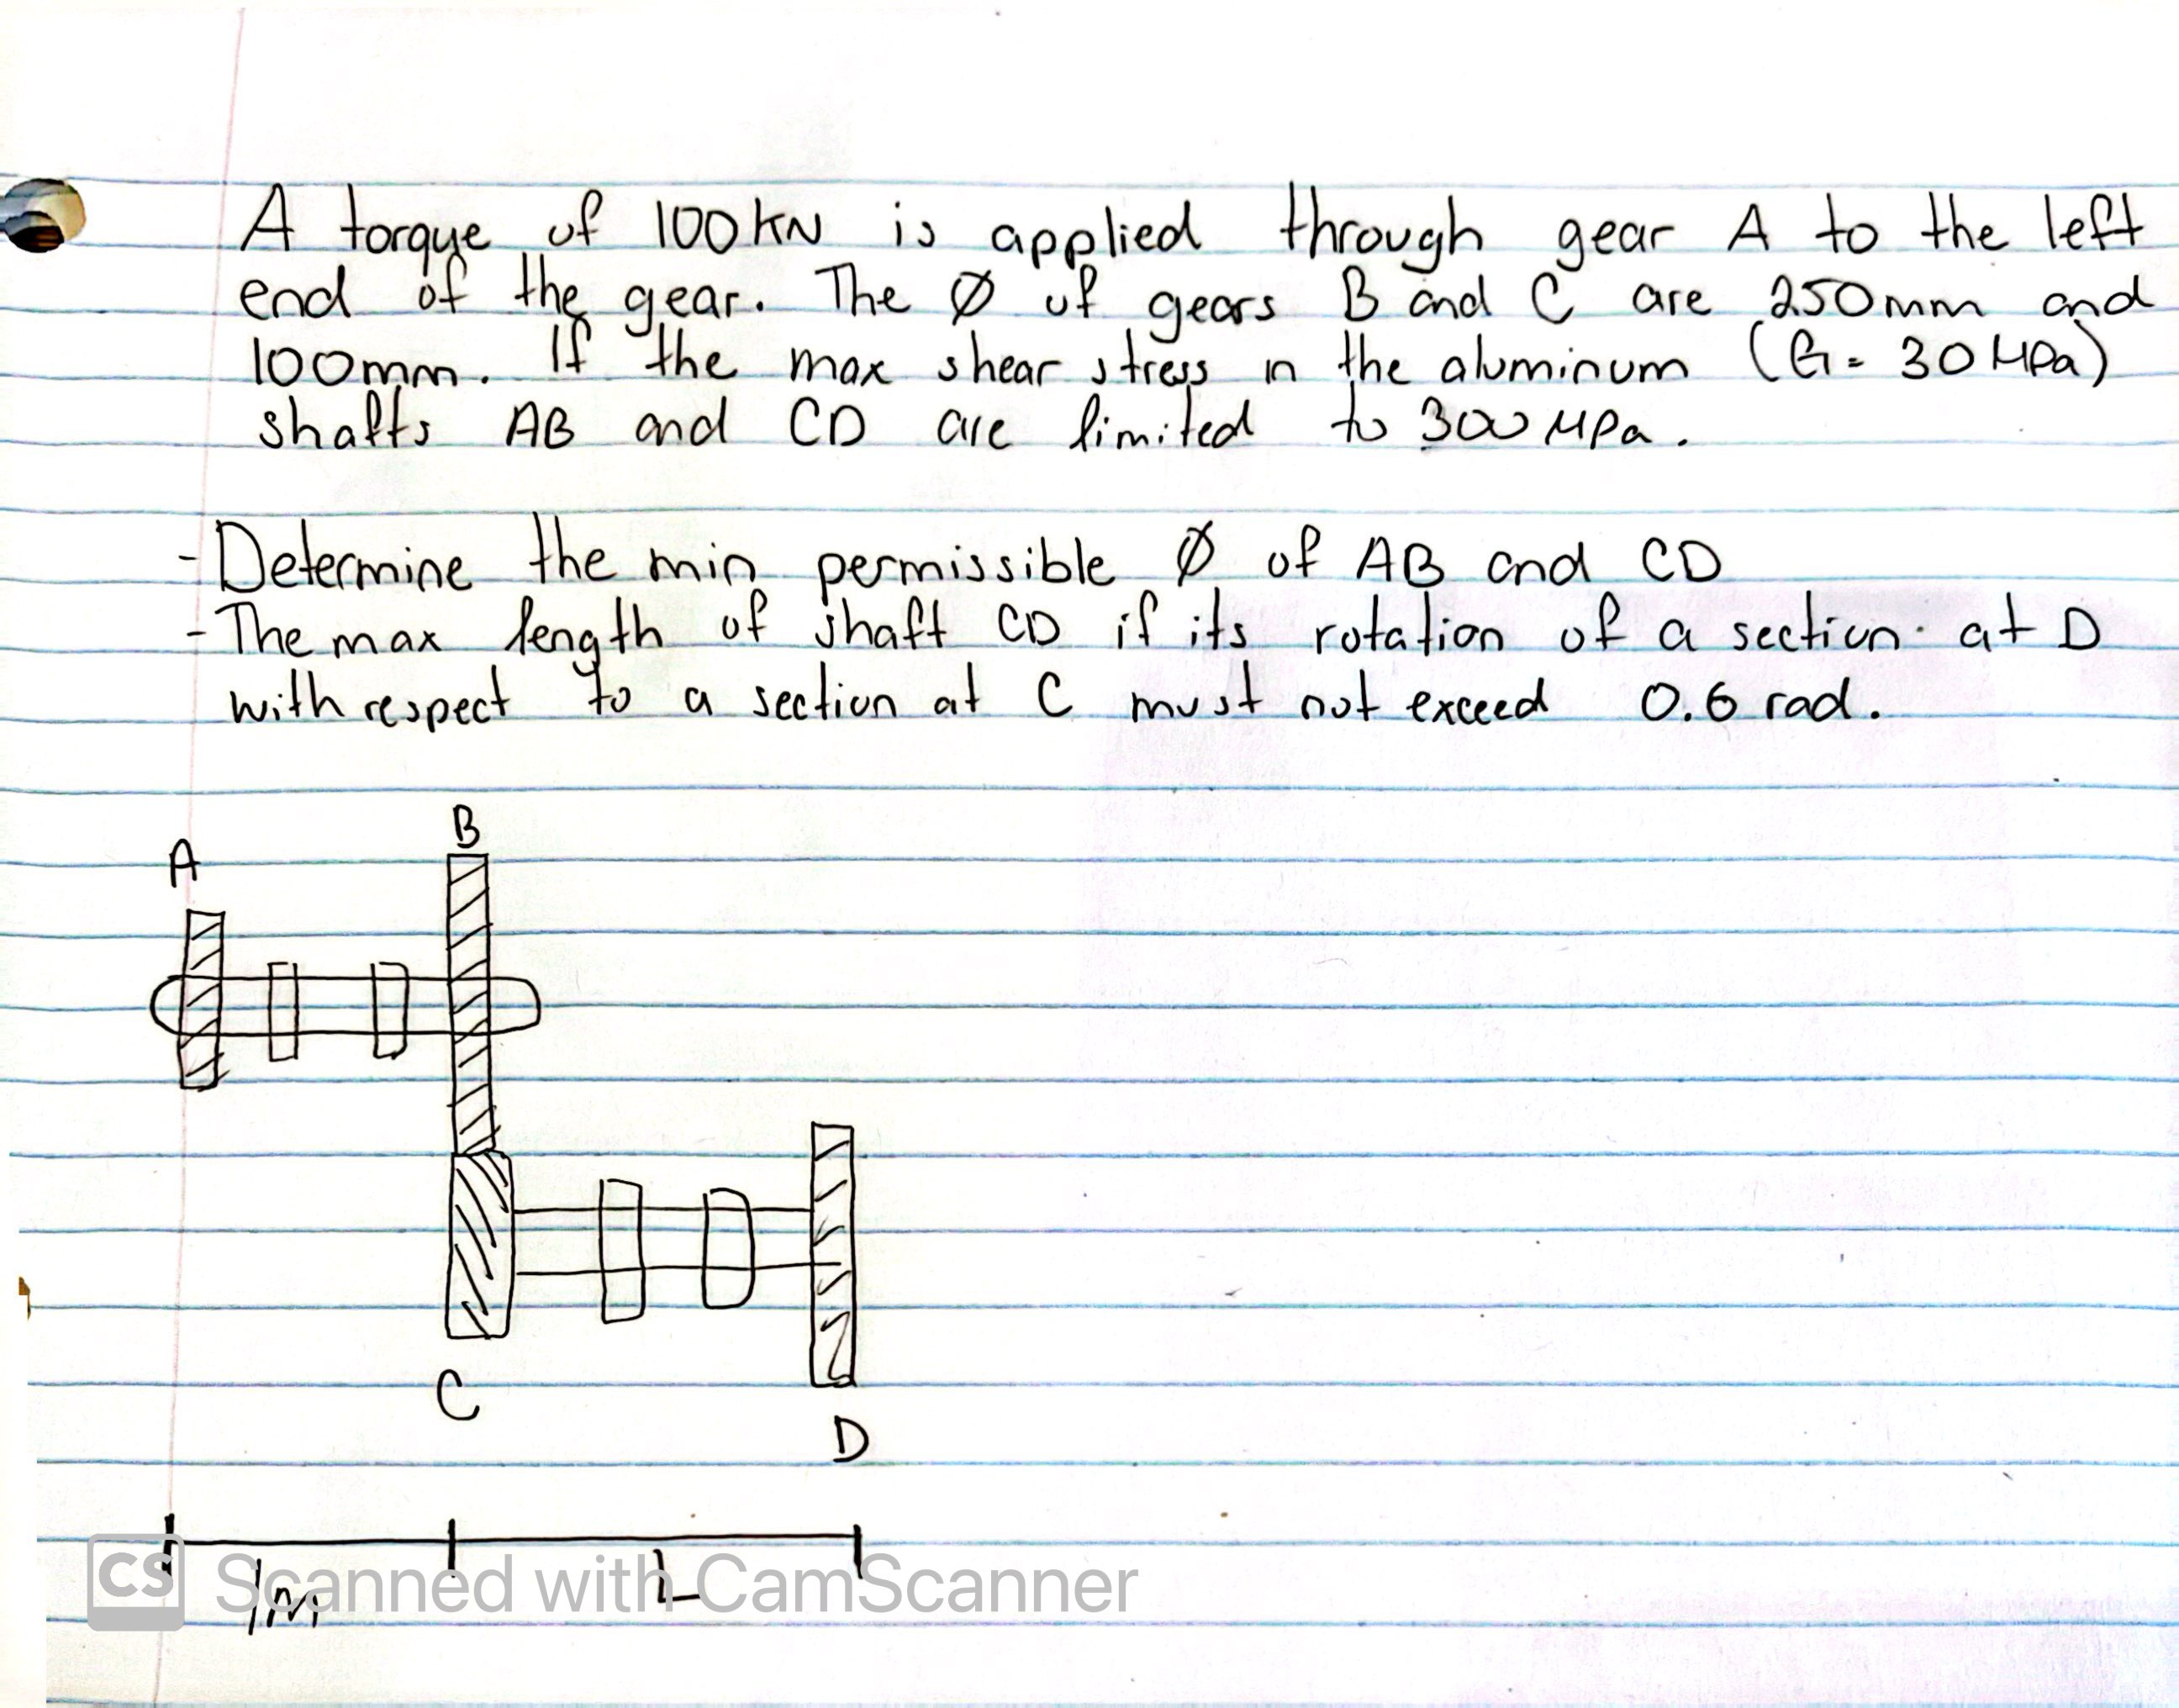 A torque of 100 KN is applied through gear A to the left
end of the gear. The Ø of gears B and C are 250mm and
100mm. If the max shear stress in the aluminum (G = 30 MPa)
shafts AB and CD are limited to 300 MPa.
- Determine the min permissible Ø of AB and CD
- The max length of shaft CD if its rotation of a section at D
with respect to a section at C must not exceed 0.6 rad.
B
A
C
D
1m
L
CS Scanned with CamScanner